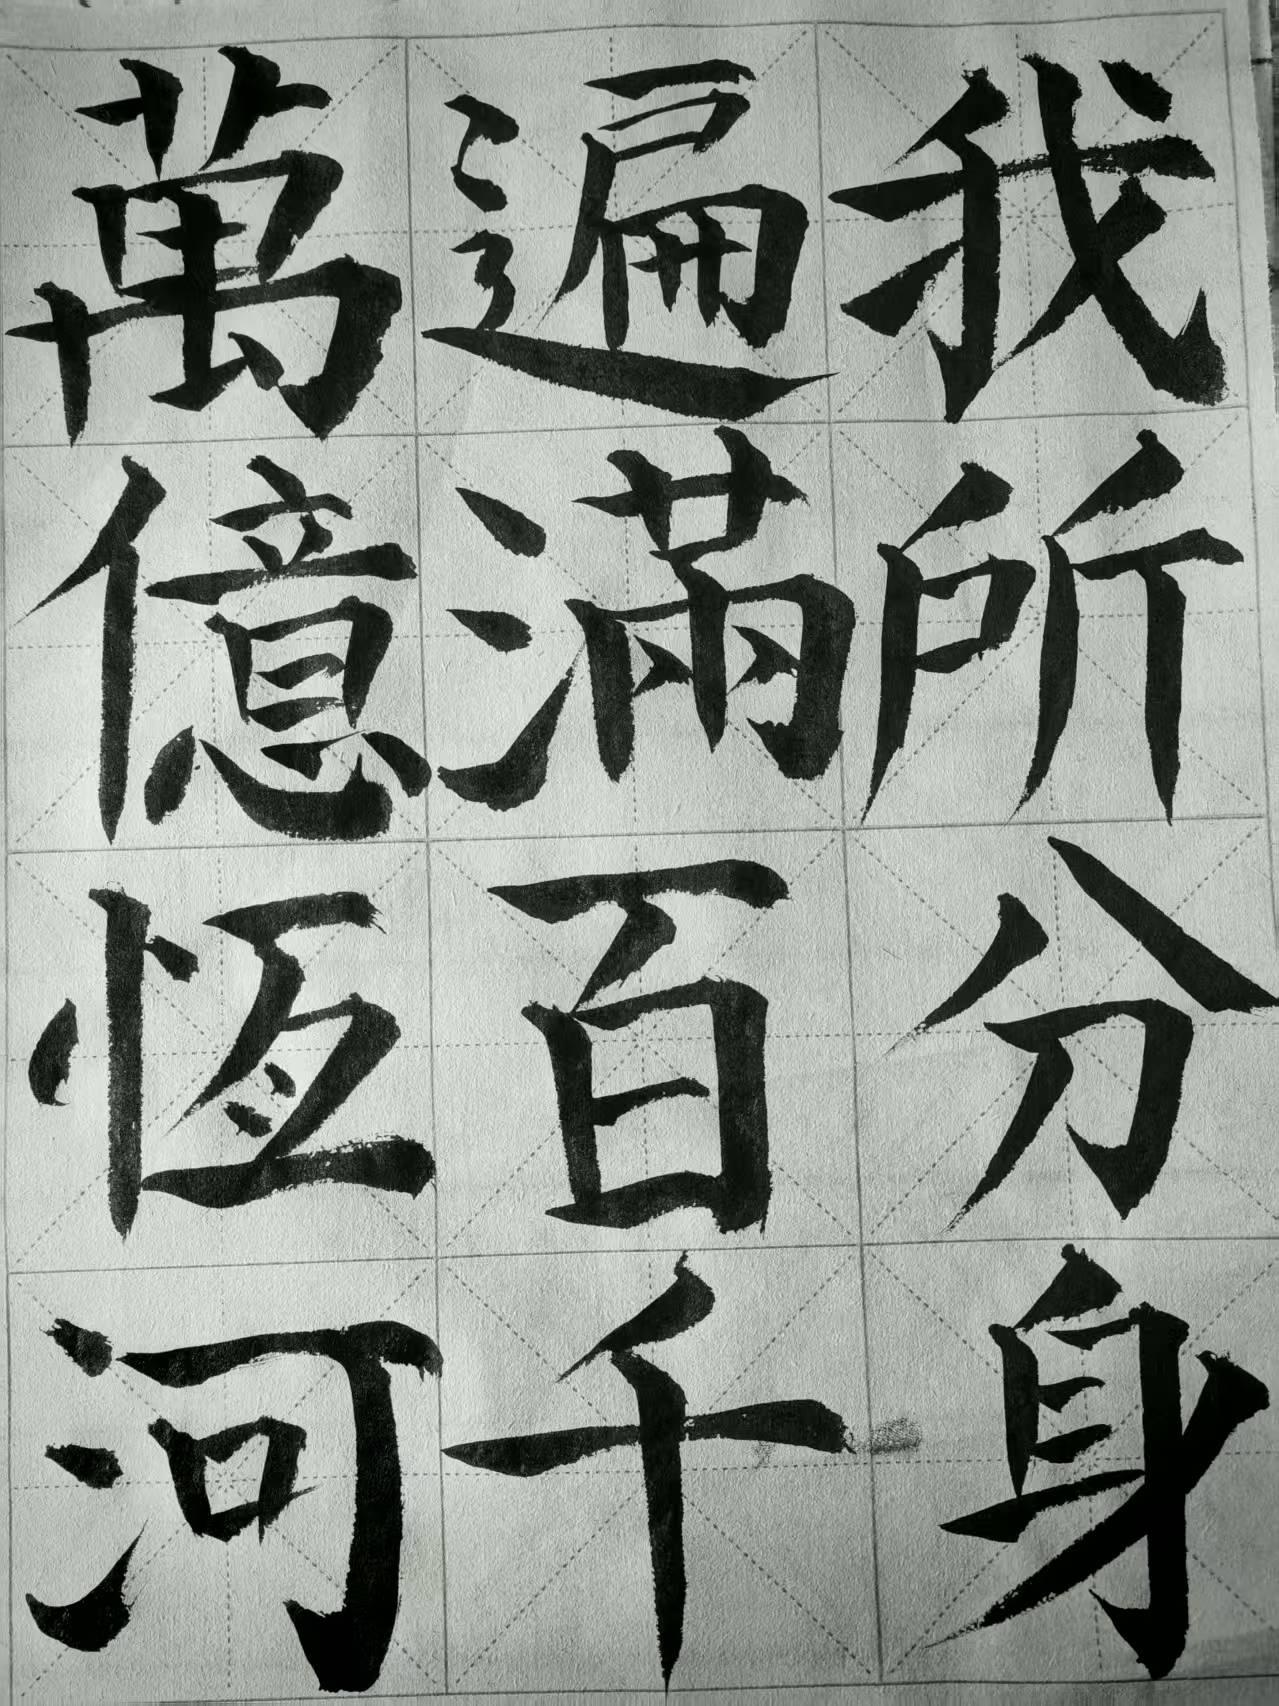 我所分身
遍滿百千
萬億恆河